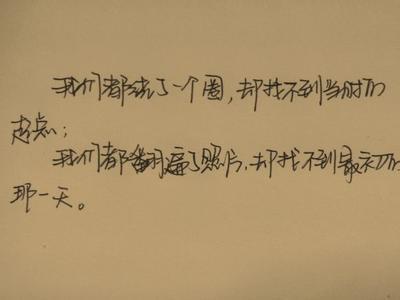 我们都绕了一个圈，却找不到当时的
起点；
我们都翻遍了照片，却找不到最初的
那一天。